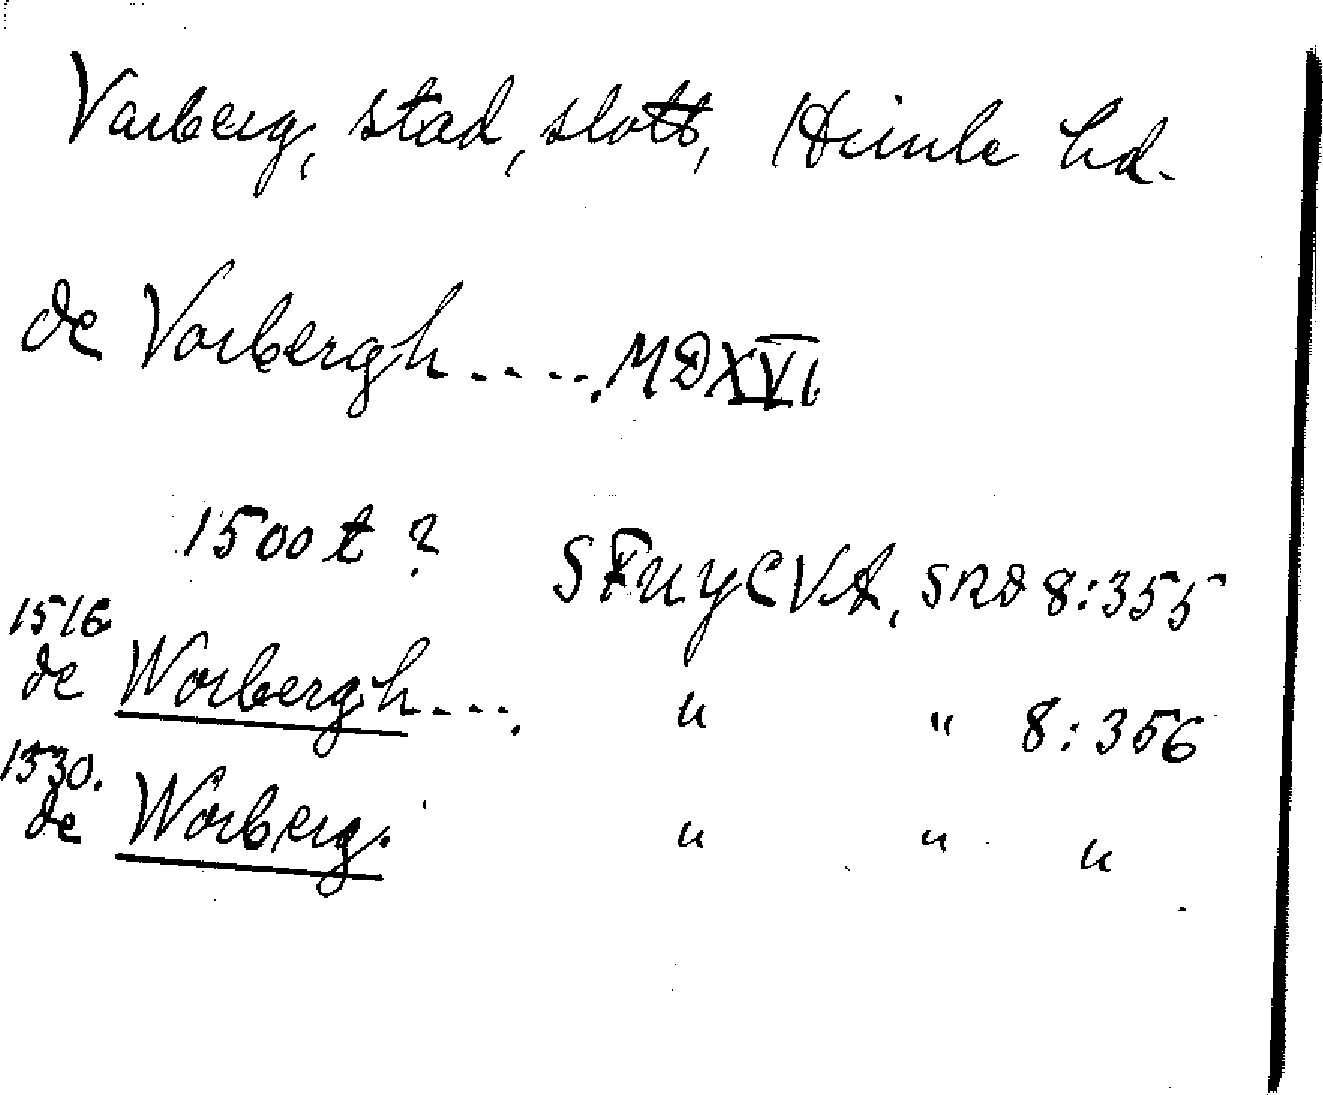 Varberg, stad, slott, Himle hd.
de Vorbergh.....MDXVI
1500 t ? SRD 8:355
1516
de Worbergh.... " " 8:356
1530.
de Worberg. " " "